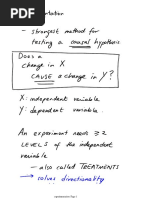 - strongest method for
testing a causal hypothesis
Does a
change in X
CAUSE a change in Y?
X: independent variable
Y: dependent variable
An experiment needs ≥ 2
LEVELS of the independent
variable
- also called TREATMENTS
→ solves directionality